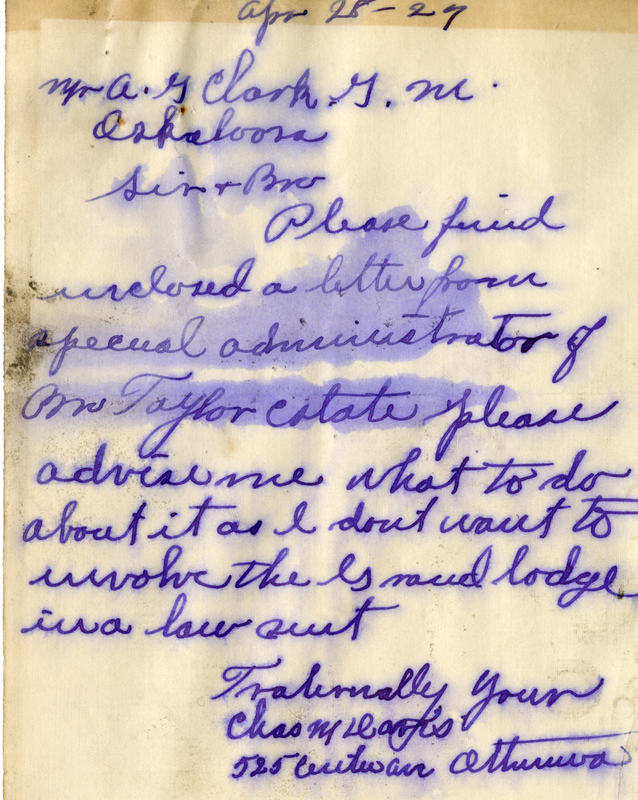 Apr 28-27
Mr A. G Clark G. M.
Oskaloosa
Sir + Bro
Please find
inclosed a letter from
specual administrator of
Bro Taylor estate please
advise me what to do
about it as I dont want to
involve the Grand lodge
in a law suit
Fraternally Your
Chas M Davis
525 Center ave Ottumwa